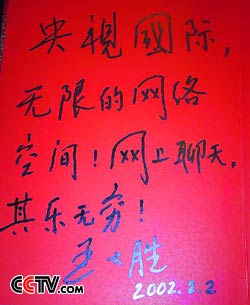 央視國际，
无限的网络
空间！网上聊天，
其乐无穷！
王 胜
2002.2.2
CCTV.com